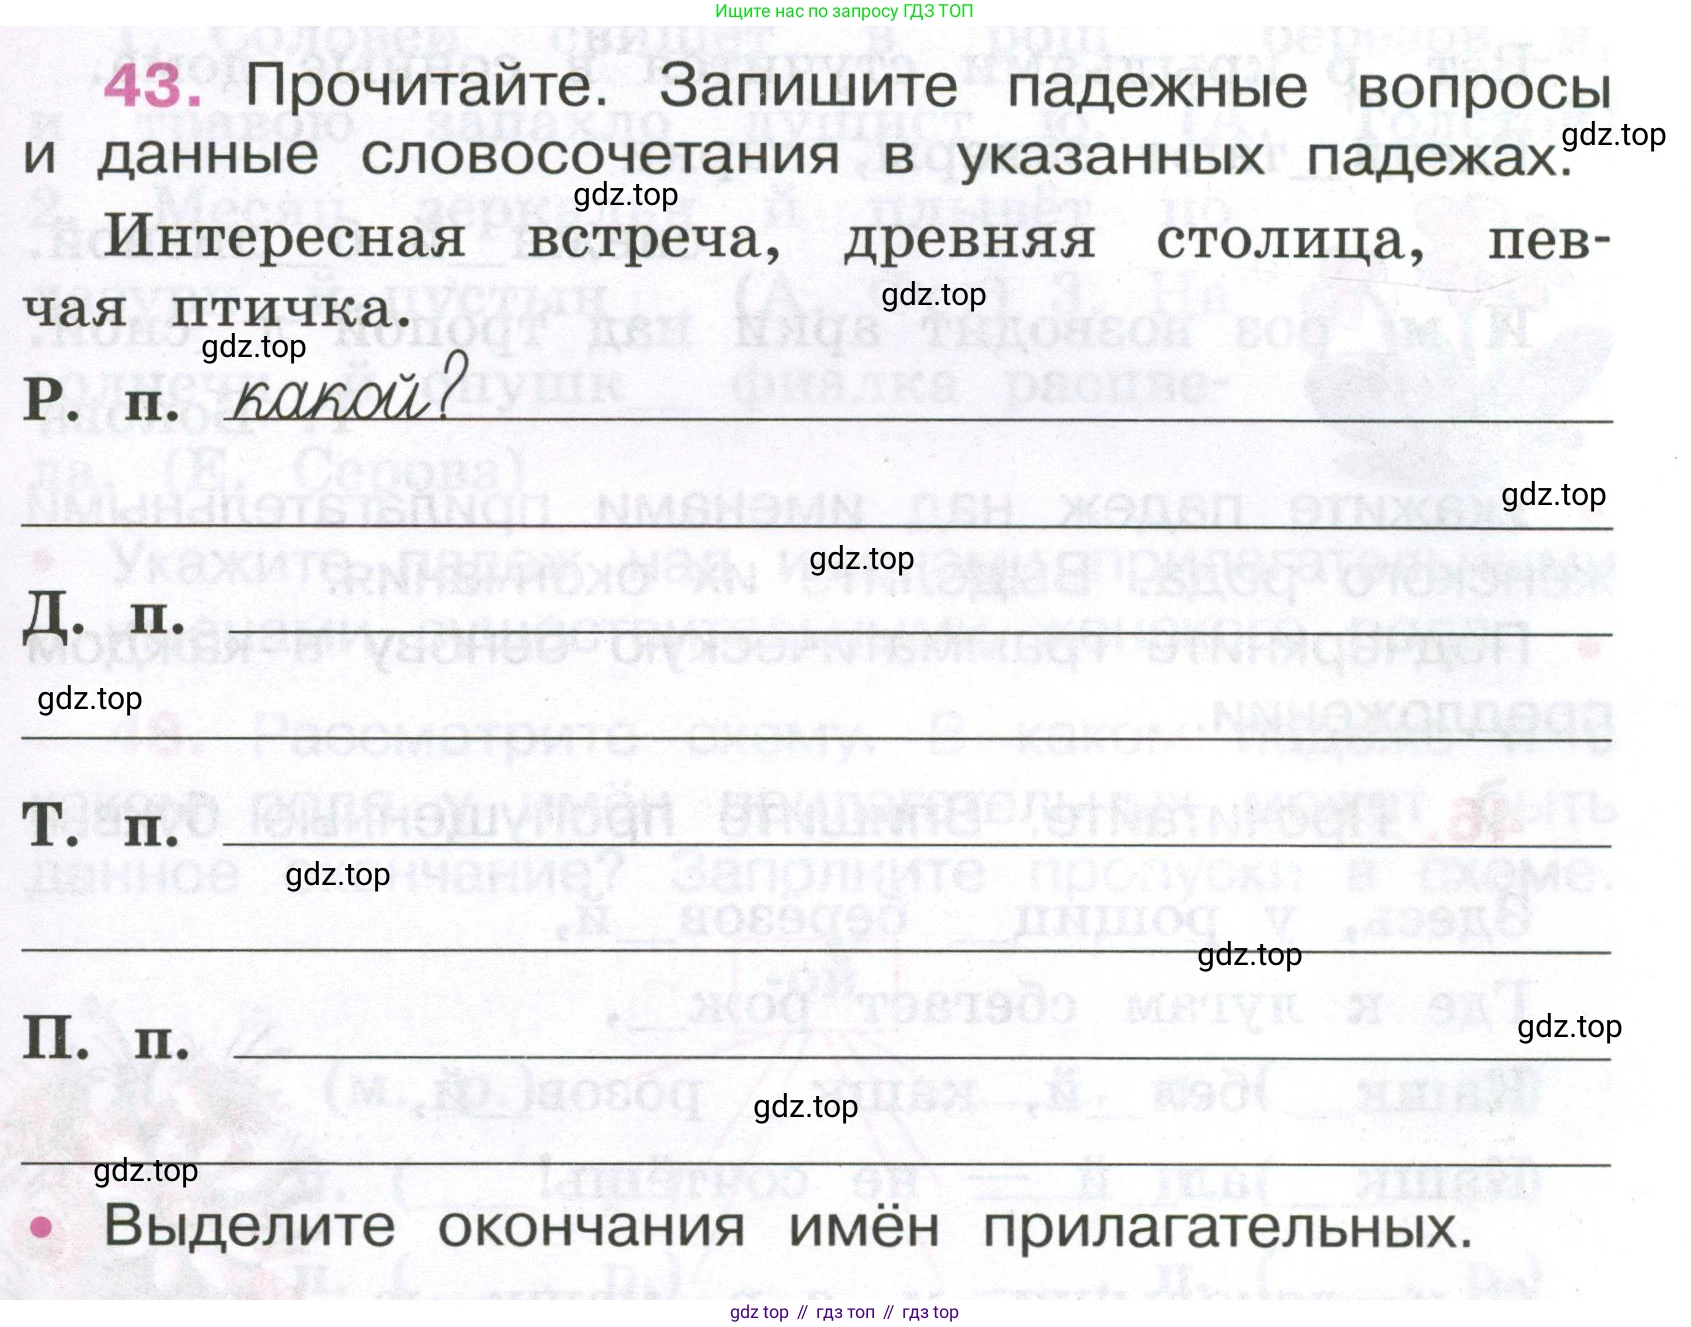 Ищите нас по запросу ГДЗ ТОП
43. Прочитайте. Запишите падежные вопросы
gdz.top
и данные словосочетания в указанных падежах.
gdz.top
Интересная встреча, древняя столица, пев-
gdz.top
чая птичка.
gdz.top
Р. п. какой?
gdz.top
gdz.top
Д. п.
gdz.top
Т. п.
gdz.top
gdz.top
П. п.
gdz.top
gdz.top
gdz.top
• Выделите окончания имён прилагательных.
gdz top // гдз топ // гдз top